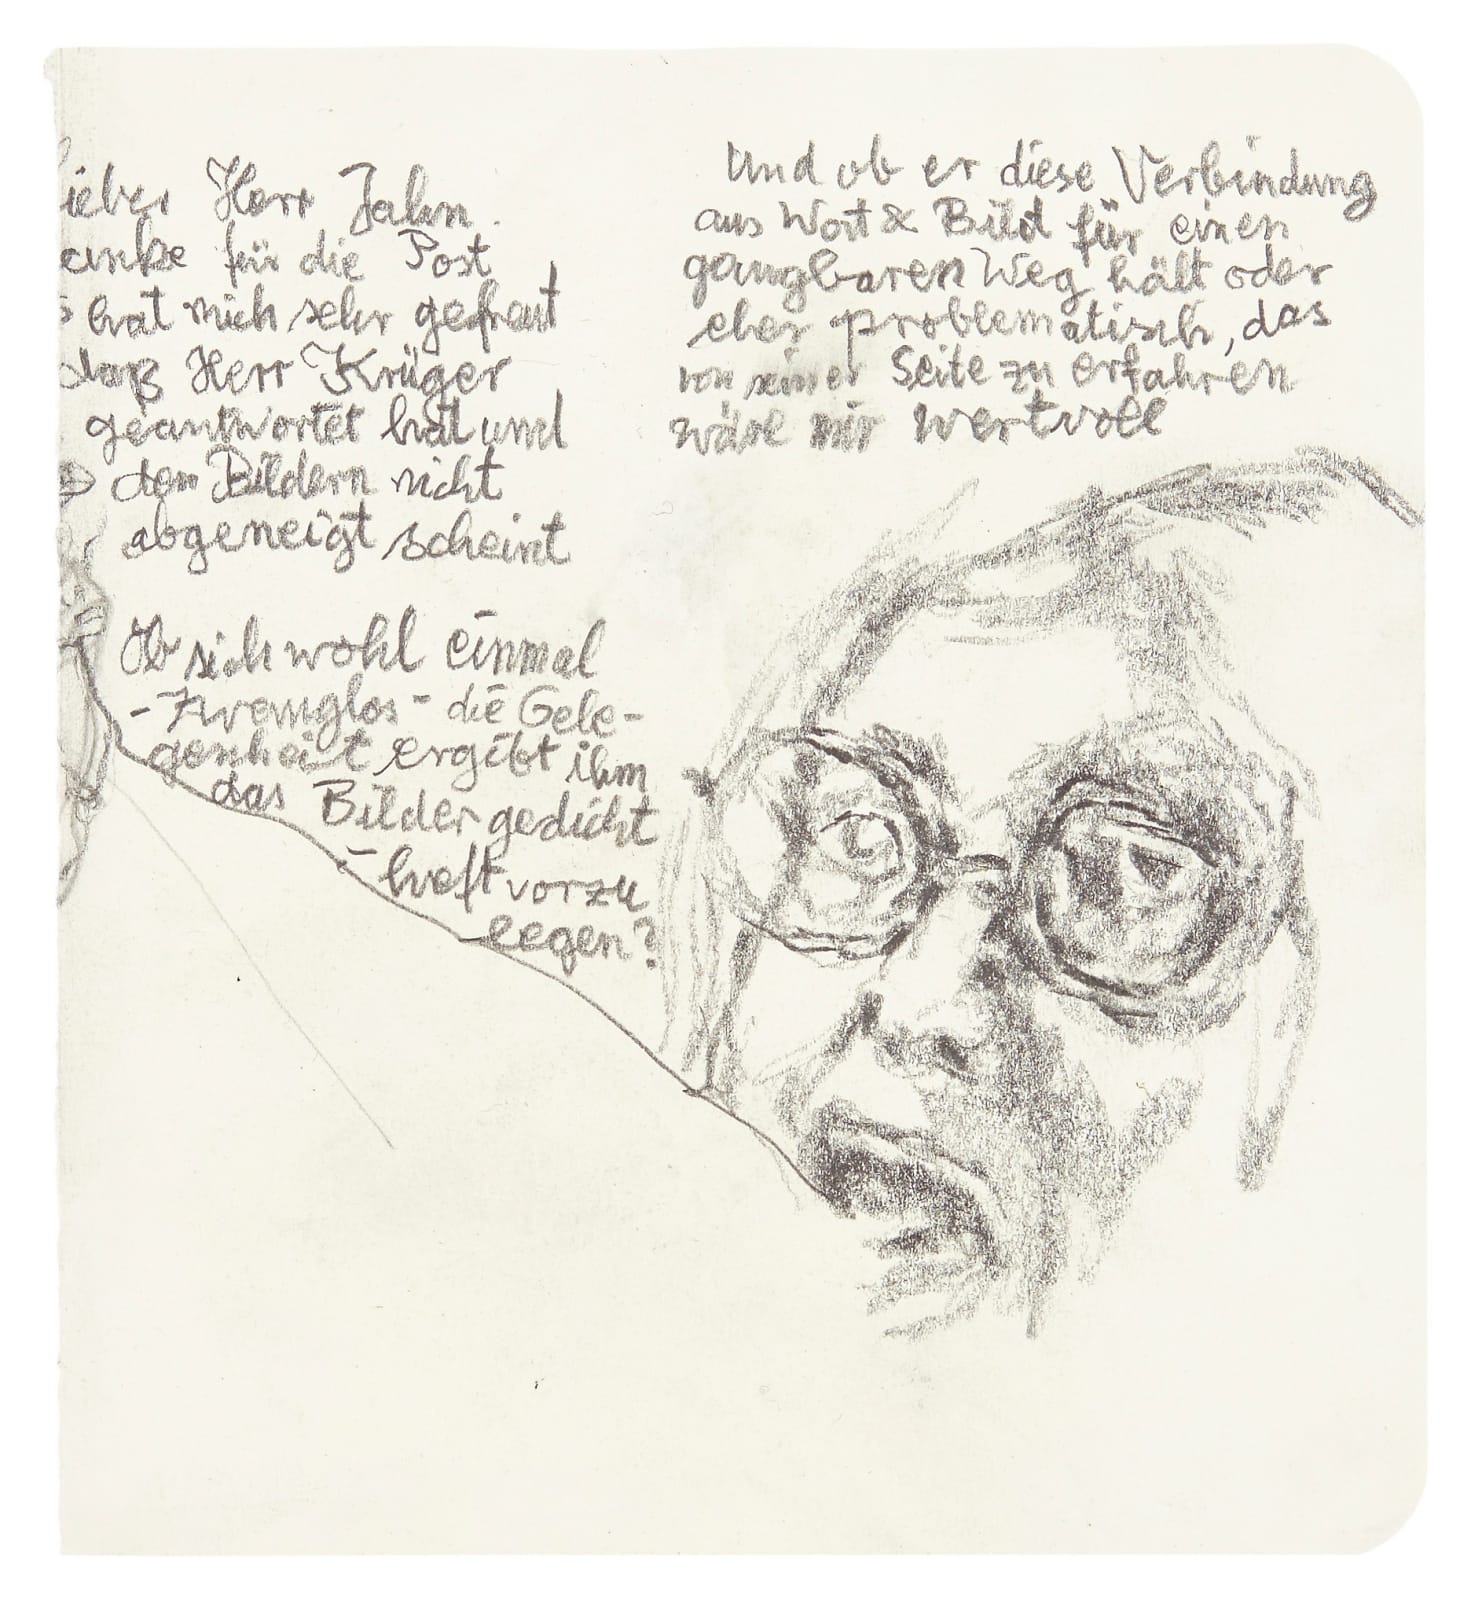 lieber Herr Jahn.
anke für die Post
s hat mich sehr gefreut
daß Herr Krüger
geantwortet hat und
den Bildern nicht
abgeneigt scheint
Ob sich wohl einmal
- Zwanglos - die Gele-
genheit ergibt ihm
das Bildergedicht
- heft vorzu
legen?
Und ob er diese Verbindung
aus Wort & Bild für einen
gangbaren Weg hält oder
eher problematisch, das
von seiner Seite zu erfahren
wäre mir wertvoll